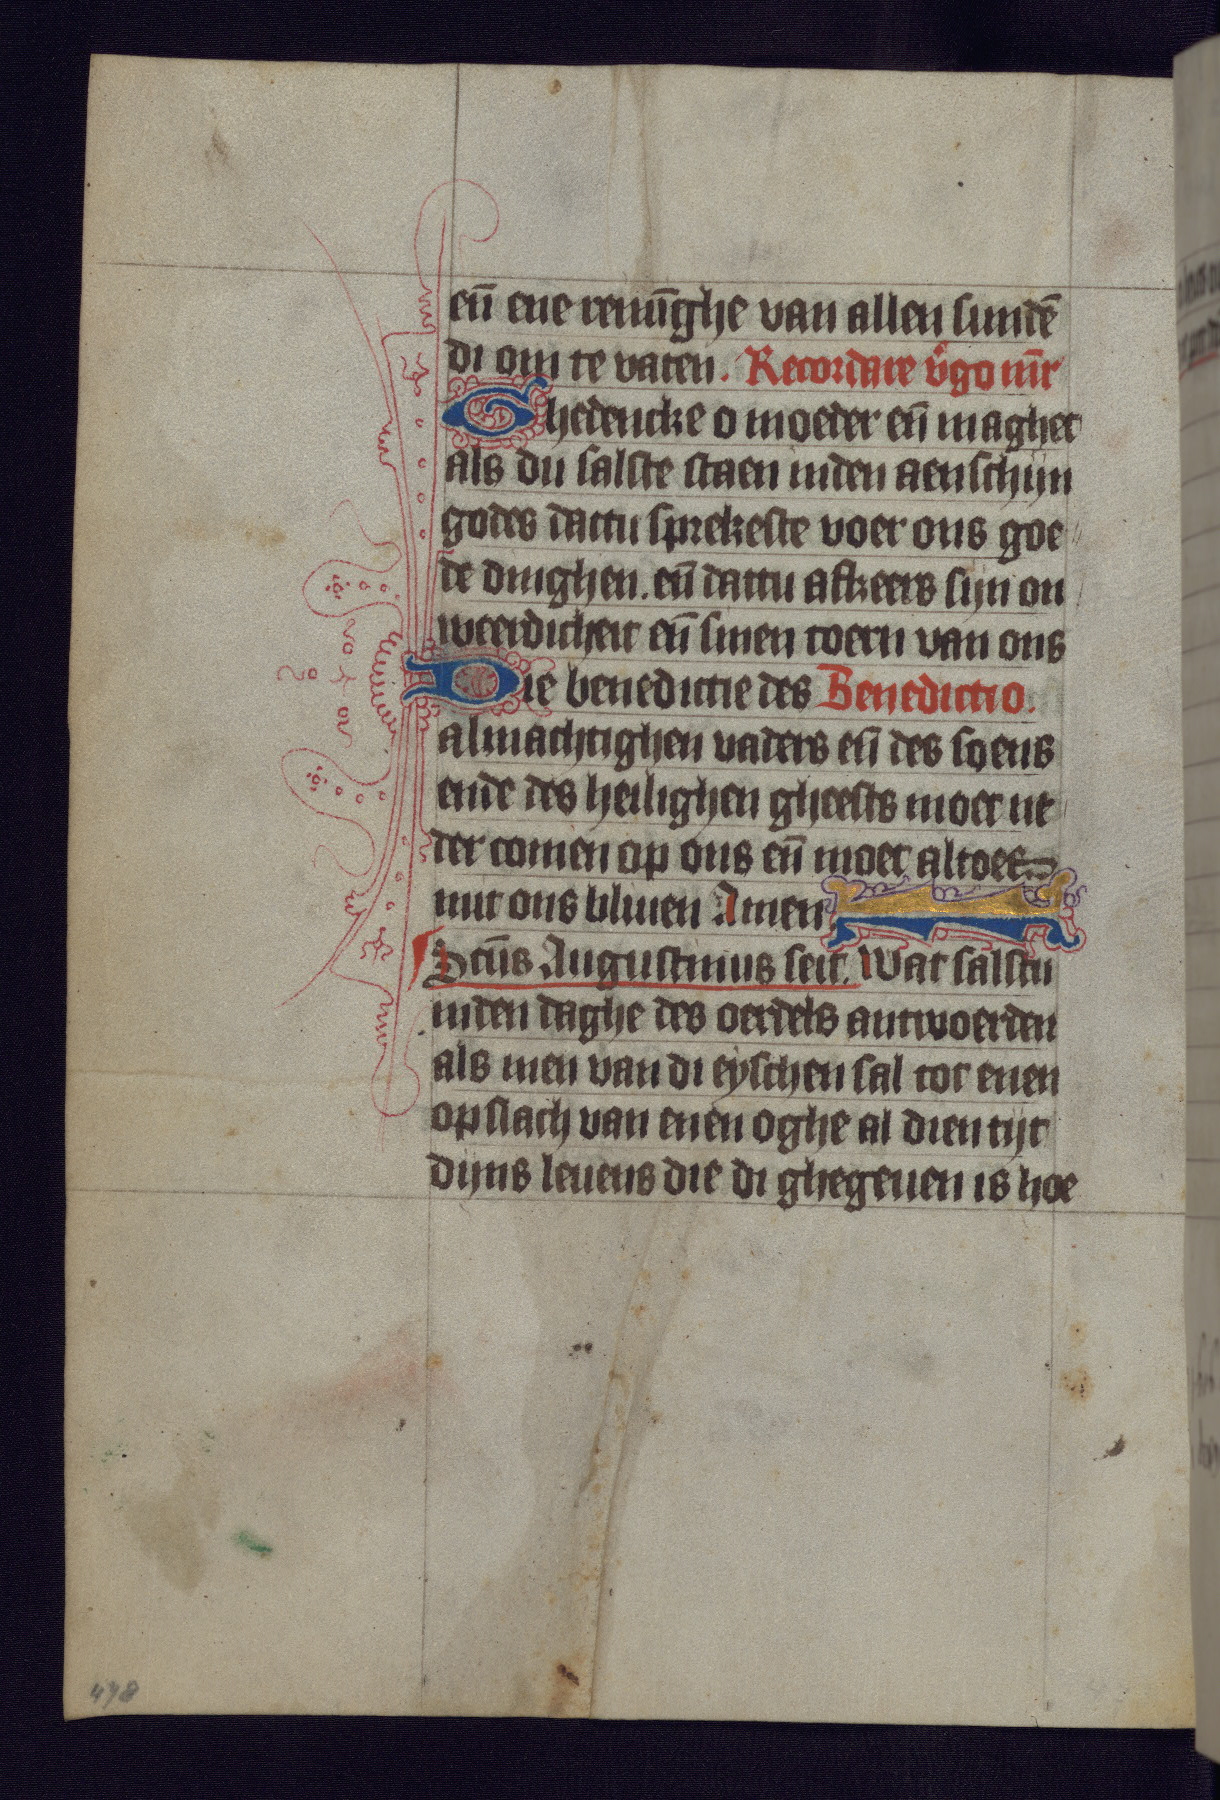 en̄ ene reinīghe van allen sundē
di om te vaten. Recordare v̓go mr̄
Ghedencke o moeder en̄ maghet
als du salste staen inden aenschijn
godes dattu sprekeste voer ons goe
de dinghen. en̄ dattu afkeers sijn on
weerdicheit en̄ sinen toern van ons
Die benedictie des Benedictio.
almachtighen vaders en̄ des soens
ende des heilighen gheests moet ne
der comen op ons en̄ moet altoes
mit ons bliuen Amen.
Sctūs Augustinus seit. Wat salstu
inden daghe des oerdels antwoerden
als men van di eyschen sal tot enen
opslach van enen oghe al dien tijt
dijns leuens die di ghegeuen is hoe
498